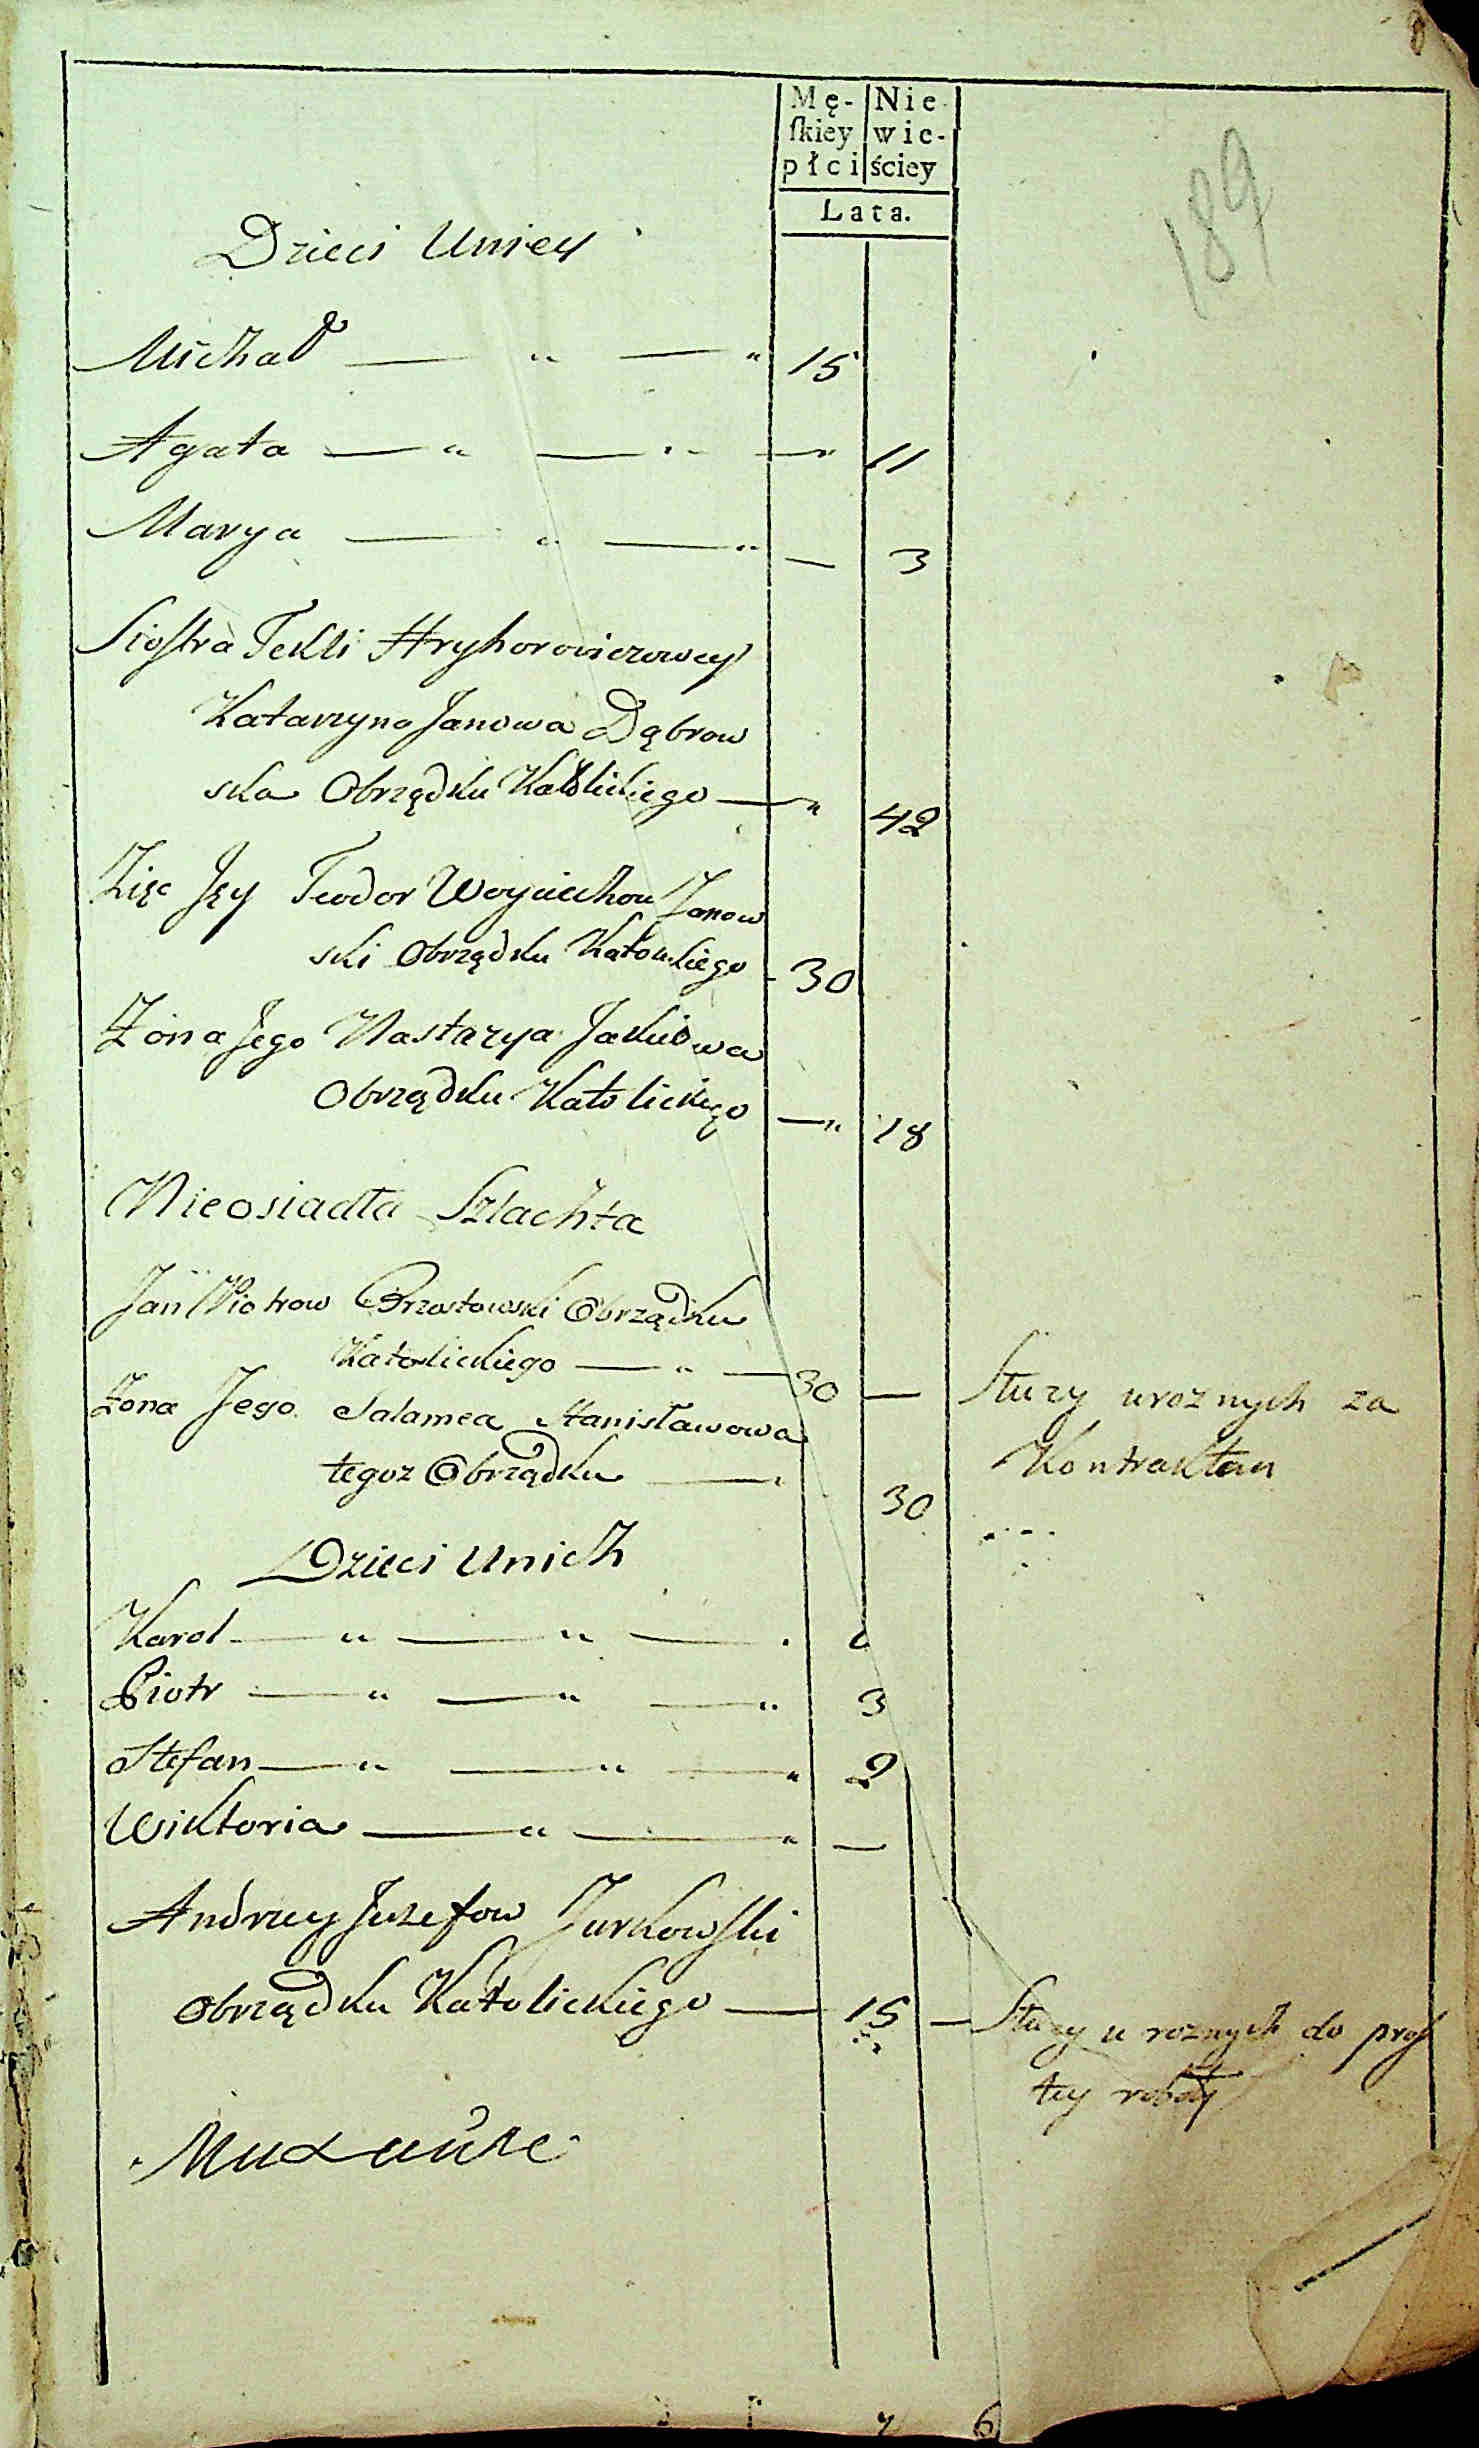 Mę- Nie
ſkiey wie-
płci ściey
Lata.
189
Dzieci Uniey
Michał — " — " 15
Agata — " — " — " 11
Marya — " — " — 3
Siostra Tekli Hryhorowiczowey
Katarzyna Janowa Dąbrow
ska Obrządku Katolickiego — " 42
Zięć Jey Teodor Woyciechow Janow
ski Obrządku Katolickiego - 30
Żona Jego Nastazya Jakubowa
Obrządku Katolickiego — " 18
Nieosiadła Szlachta
Jan Piotrow Brzostowski Obrządku
Katolickiego — " — 30 — Służy u roznych za
Żona Jego Salamea Stanisławowa
Kontraktem
tegoz Obrządku — " 30
Dzieci Unich
Karol — " — " — .
Piotr — " — " — " 3
Stefan — " — " — " 2
Wiktoria — " — " —
Andrzey Juzefow Jurkowski
Obrządku Katolickiego — 15 — Służy u roznych do pros
tey roboty